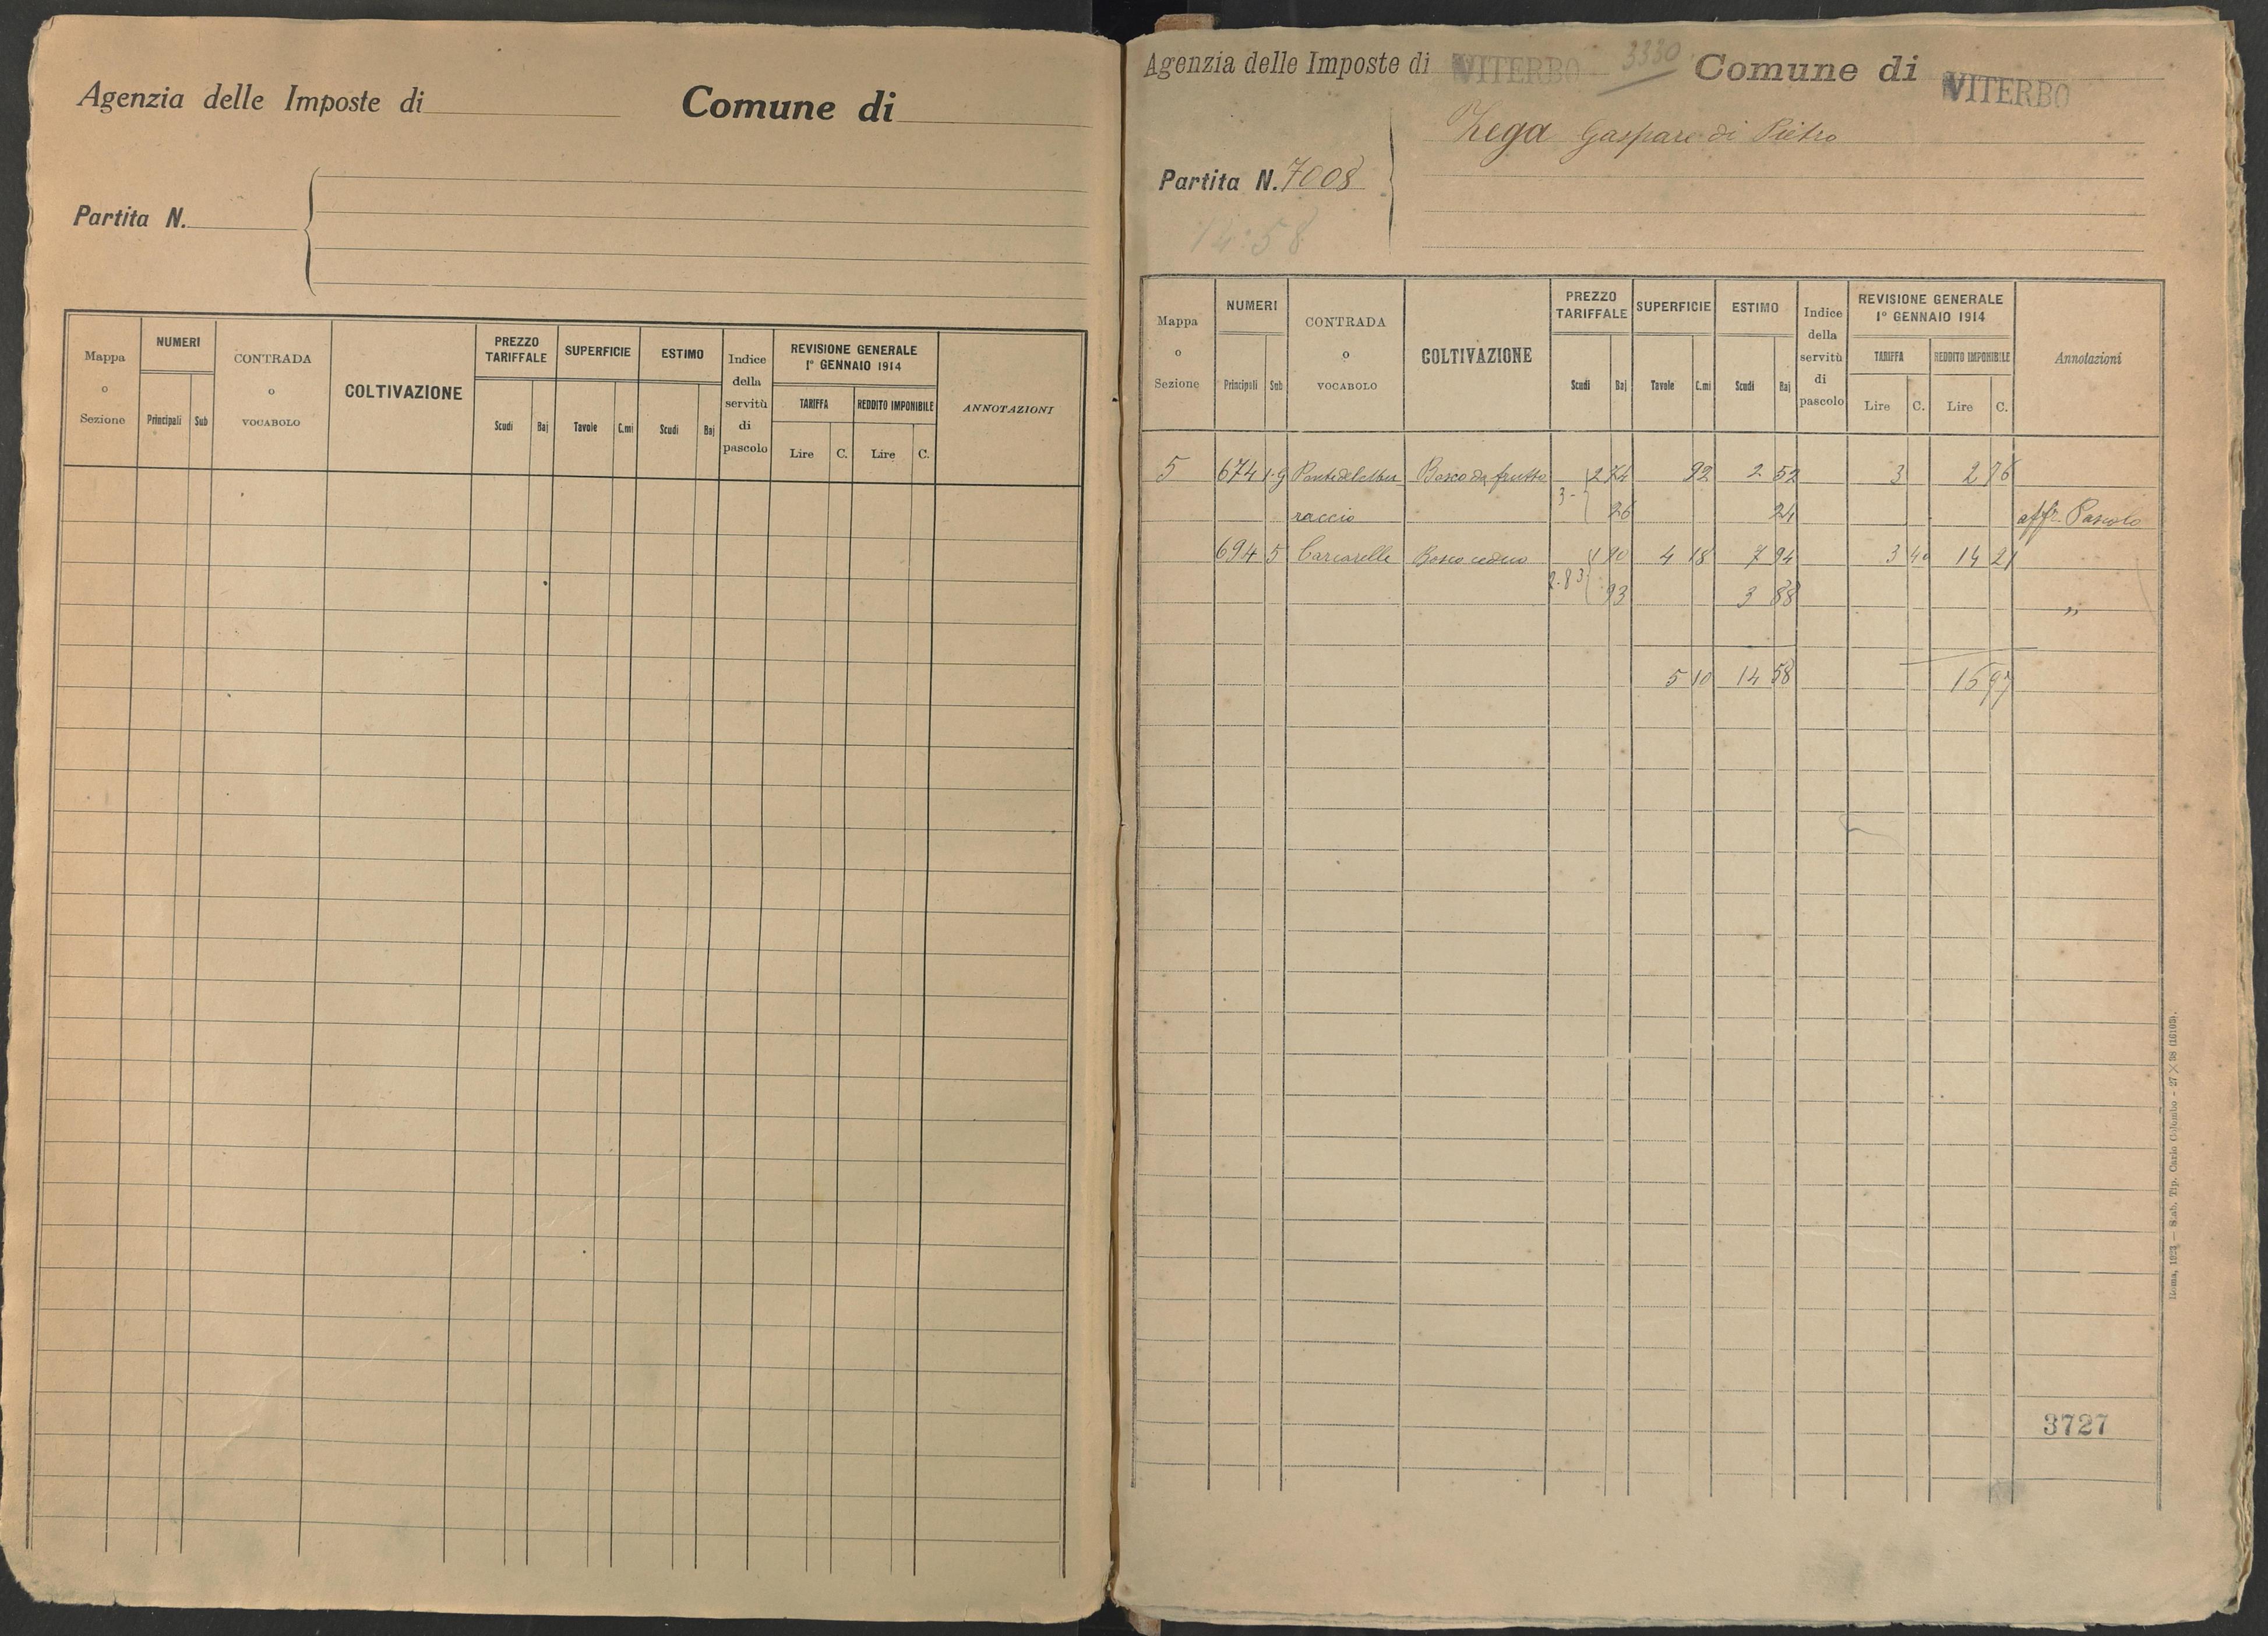 Agenzia delle Imposte di Comune di
Partita N.
Mappa o Sezione
NUMERI
Principali Sub
CONTRADA o VOCABOLO
COLTIVAZIONE
PREZZO TARIFFALE
Scudi Baj
SUPERFICIE
Tavole C.mi
ESTIMO
Scudi Baj
Indice della servitù di pascolo
REVISIONE GENERALE
1° GENNAIO 1914
TARIFFA REDDITO IMPONIBILE
Lire C. Lire C.
ANNOTAZIONI
Agenzia delle Imposte di VITERBO 3330 Comune di VITERBO
Zega Gaspare di Pietro
Partita N. 7008
14:58
Mappa o Sezione
NUMERI
Principali Sub
CONTRADA o VOCABOLO
COLTIVAZIONE
PREZZO TARIFFALE
Scudi Baj
SUPERFICIE
Tavole C.mi
ESTIMO
Scudi Baj
Indice della servitù di pascolo
REVISIONE GENERALE
1° GENNAIO 1914
TARIFFA REDDITO IMPONIBILE
Lire C. Lire C.
Annotazioni
5 674 Bosco da frutto 2 74 92 2 52 3 2 76
raccio 3- 26 24 affr. Pascolo
694 5 Carcarelle Bosco ceduo 1 90 4 18 7 94 3 40 14 21
2.83 93 3 88 "
5 10 14 58 16 97
3727
Roma, 1923 — Stab. Tip. Carlo Colombo - 27 × 38 (16103).